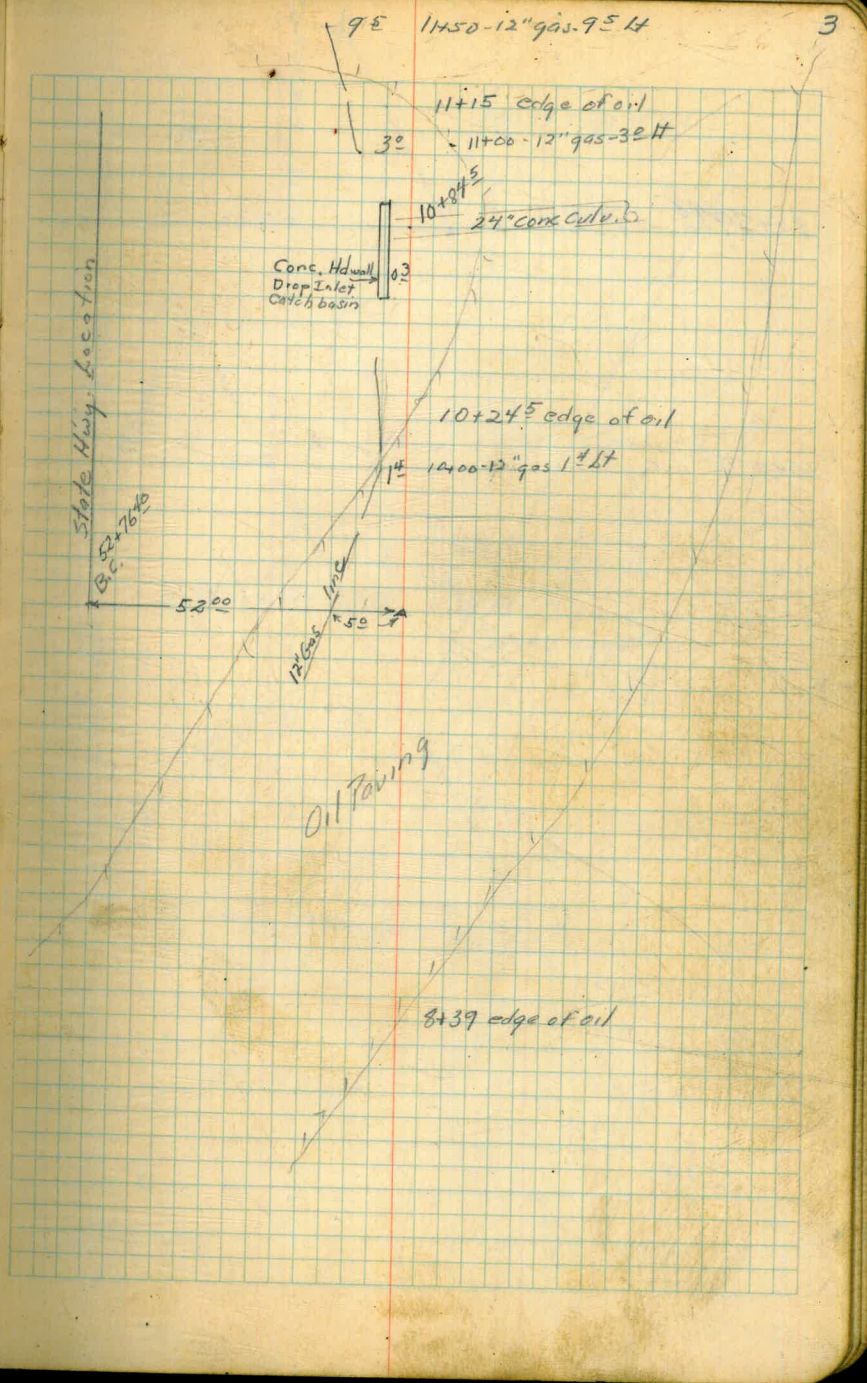 3
9⁵ 11+50-12" gas-9⁵ Lt
11+15 edge of oil
3⁰ 11+00-12" gas-3⁰ Lt
10+84⁵
24" Conc Culv.
Conc. Hdwall
Drop Inlet
Catch basin
0.3
State Hwy. Location
10+24⁵ edge of oil
1⁴ 10+00-12" gas 1⁴ Lt
B.C. 52+76⁴⁰
52⁰⁰
5⁰
12" Gas line
Oil Paving
8+39 edge of oil